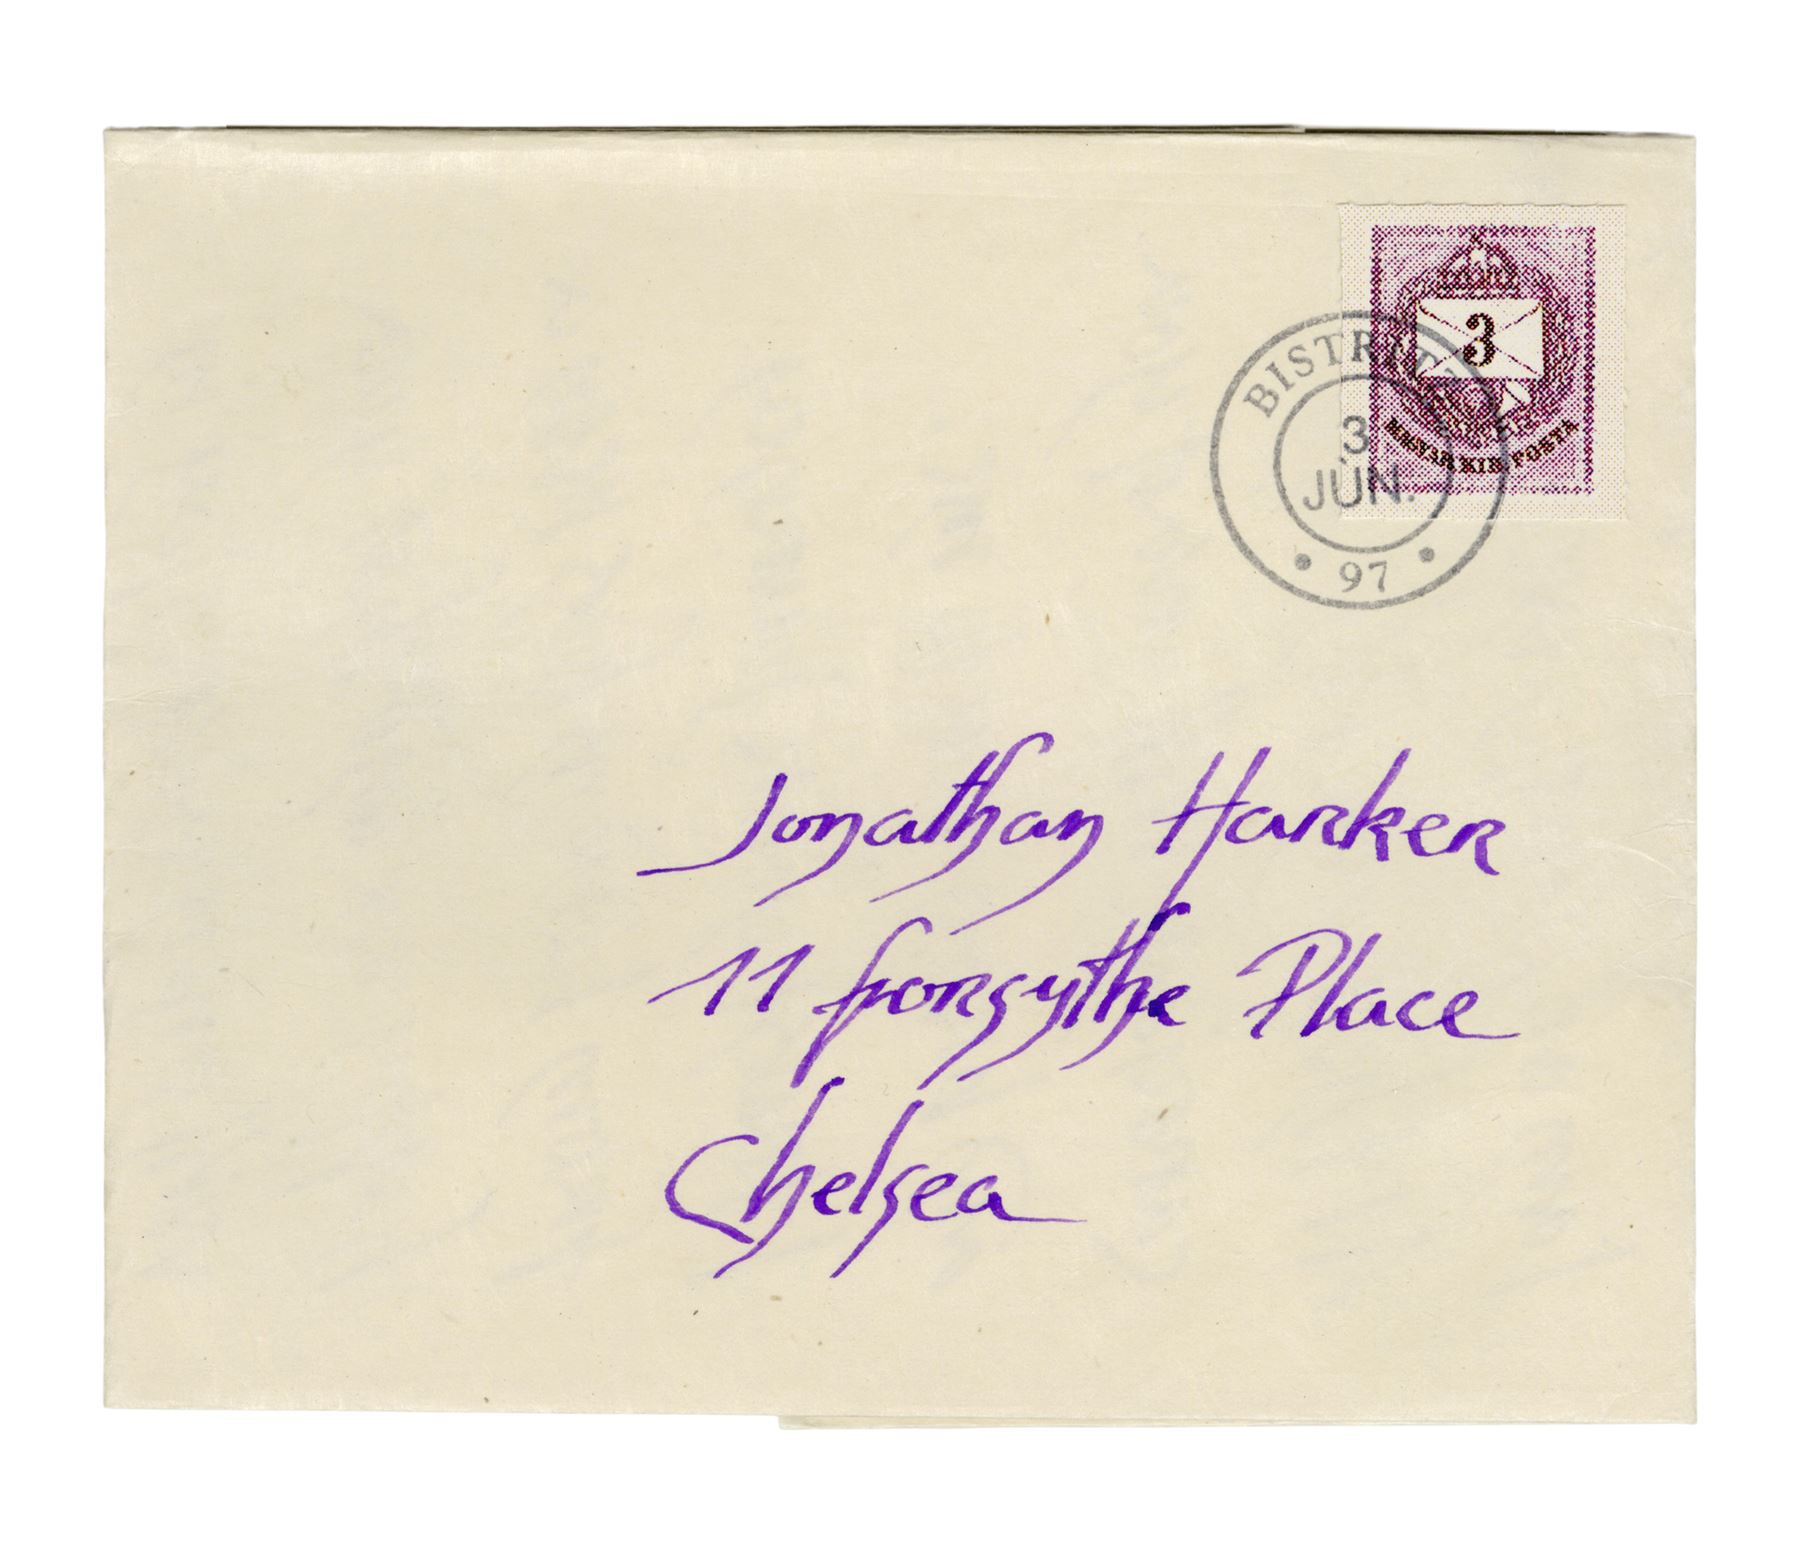 3
MAGYAR KIR. POSTA
BISTRITZ
3
JUN.
97
Jonathan Harker
11 Forsythe Place
Chelsea